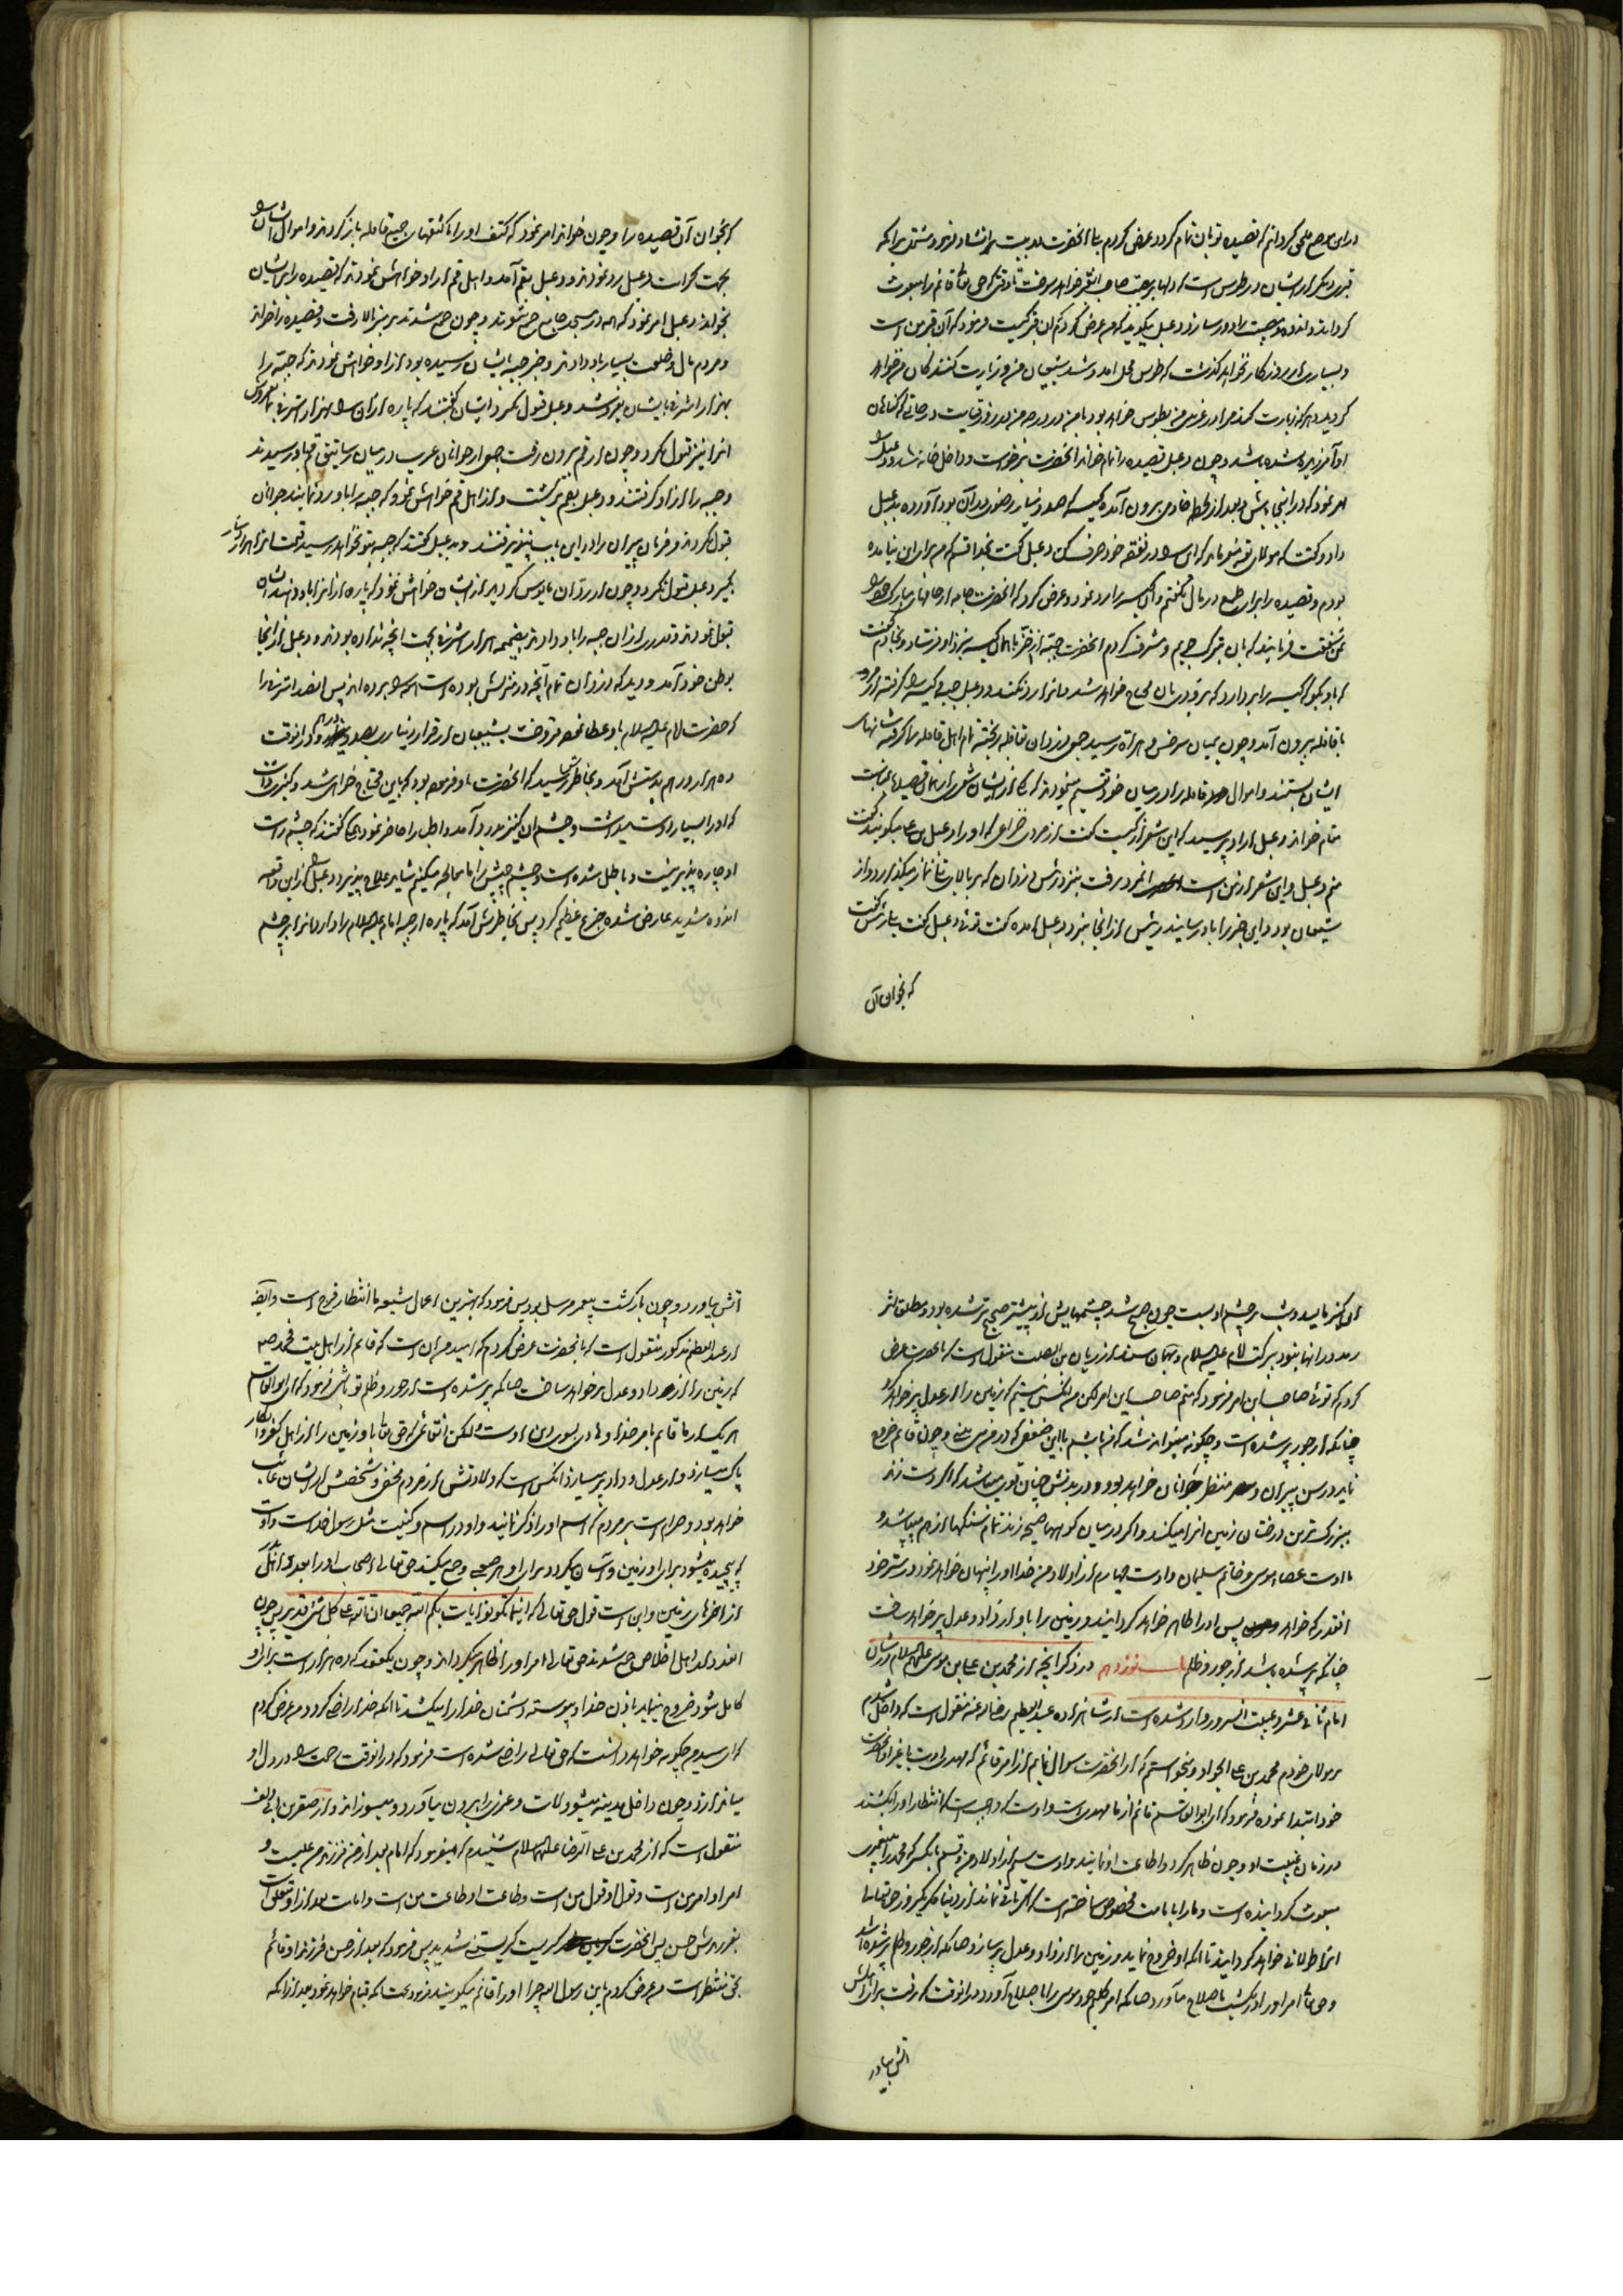 در این موضع ملحق گردانم که قصیده تو بان تمام گردد عرض کردم بلی آنحضرت دو بیت انشاد فرمود مشتمل بر آنکه
قبر دیگر از ایشان در طوس است که دلها بر مصیبت صاحب آن قبر خواهد سوخت تا وقتی که حق تعالی قائم را مبعوث
گرداند و اندوه و مصیبت را دور سازد دعبل میگوید که عرض کردم این قبر کیست فرمود که آن قبر من است
و بسیاری از روزگار نخواهد گذشت که طوس محل آمد و شد شیعیان من و زیارت کنندگان من خواهد
گردید و هر که زیارت کند مرا در غربت من بطوس خواهد بود با من در درجه من در روز قیامت در حالتی که گناهان
او آمرزیده شده باشد و چون دعبل قصیده را تمام خواند آنحضرت برخواست و داخل خانه شد و دعبل را
امر نمود که در اینجا باش و بعد از لحظه خادمی بیرون آمد کیسه که صد دینار رضوی در آن بود آورده به دعبل
داد و گفت که مولای تو میفرماید که این را در نفقه خود صرف کن دعبل گفت بخدا قسم که من برای این نیامده
بودم و قصیده را برای طمع در مال نگفتم و آن کیسه را رد نمود و عرض کرد که آنحضرت جامه از جامهای مبارک خود را
بمن شفقت فرمایند که بآن تبرک جویم و مشرف گردم آنحضرت جبه از خز با همان کیسه نزد او فرستاد و بخادم گفت
که باو بگو که کیسه را بردارد که بزودی بآن محتاج خواهد شد و باز رد نکند و دعبل جبه و کیسه را گرفته از مرو
با قافله بیرون آمد و چون بمیان سرخس و هراة رسید جمعی دزدان بقافله ریختند تمام اهل قافله را گرفته شانهای
ایشان بستند و اموال اهل قافله را در میان خود قسمت مینمودند که یکی از ایشان شعری از همان قصیده را بمناسبت
مقام خواند دعبل از او پرسید که این شعر از کیست گفت از مردی خزاعی که او را دعبل بن علی میگویند گفت
منم دعبل و این شعر از من است آنمرد برفت بنزد رئیس دزدان که بر بالای تل نماز میکرد و از
شیعیان بود و این خبر را باو رسانید رئیس از آنجا بنزد دعبل آمده گفت توئی دعبل گفت بلی رئیس گفت
که بخوان آن
که بخوان آن قصیده را و چون خواند امر نمود که کتف او را با کتفهای جمیع قافله باز کردند و اموال ایشان را
بجهت کرامت دعبل رد نمودند و دعبل بقم آمد و اهل قم از او خواهش نمودند که قصیده را بر ایشان
بخواند دعبل امر نمود که همه در مسجد جامع جمع شوند و چون جمع شدند بر منبر بالا رفت و قصیده را خواند
و مردم مال و خلعت بسیار باو دادند و خبر جبه بایشان رسیده بود از او خواهش نمودند که جبه را
بهزار اشرفی بایشان بفروشد دعبل قبول نکرد و ایشان گفتند که پاره از آن را بهزار اشرفی بما بفروش
انرا نیز قبول نکرد و چون از قم بیرون رفت جمعی از جوانان عرب در میان رساتیق قم باو رسیدند
و جبه را از او گرفتند و دعبل بقم برگشت و از اهل قم خواهش نمود که جبه را باو رد نمایند جوانان
قبول نکردند و فرمان پیران را در این باب نپذیرفتند و به دعبل گفتند که جبه بتو نخواهد رسید قیمت انرا هزار دینار
بگیر دعبل قبول نکرد و چون از رد آن مایوس گردید از ایشان خواهش نمود که پاره از انرا باو دهند ایشان
قبول نمودند و قدری از آن جبه را باو دادند بضمیمه هزار اشرفی بجهت آنچه نداده بودند و دعبل از آنجا
بوطن خود آمد و دید که دزدان تمام آنچه در منزلش بوده است همه را برده اند پس آن صد اشرفی را
که حضرت امام علیه السلام باو عطا نموده فروخت بشیعیان از قرار دیناری بصد درم و در آنوقت
ده هزار درهم بدستش آمد و بخاطرش رسید که آنحضرت باو فرموده بود که باین محتاج خواهی شد و کنیزی داشت
که او را بسیار دوست میداشت و چشم آن کنیز بدرد آمد و اطبا را حاضر نمود همه گفتند که چشم راست
او چاره پذیر نیست و باطل شده است و چشم چپش را ما معالجه میکنیم شاید علاج پذیرد دعبل را از این واقعه
اندوه شدید عارض شده جزع عظیم کرد پس بخاطرش آمد که پاره از جبه امام علیه السلام را دارد انرا بر چشم
آن کنیز مالید و شب بر چشم او بست چون صبح شد چشمهایش از پیشتر صحیح تر شده بود و مطلقا اثر
رمد در آنها نبود ببرکت امام علیه السلام و بهمان سند از ریان بن الصلت منقول است که بآنحضرت عرض
کردم که توئی صاحب این امر فرمود که منم صاحب این امر لکن من آنکس نیستم که زمین را از عدل پر خواهد کرد
چنانکه از جور پر شده است و چگونه میتواند شد که من باشم با این ضعفی که در من می بینی و چون قائم خروج
نماید در سن پیران و منظر جوانان خواهد بود و در بدنش چنان قوی میباشد که اگر دست زند
ببزرگترین درختان زمین انرا میکند و اگر در میان کوهها صیحه زند تمام سنگها از هم میپاشد و
با اوست عصای موسی و خاتم سلیمان و اوست چهارم از اولاد من خدا او را پنهان خواهد نمود در ستر خود
آنقدر که خواهد پس او را ظاهر خواهد گردانید و زمین را باو از داد و عدل پر خواهد ساخت
چنانکه پر شده باشد از جور و ظلم باب نوزدهم در ذکر آنچه از محمد بن علی بن موسی علیهم السلام در شان
امام ثانی عشر و غیبت آنسرور وارد شده است از شاهزاده عبدالعظیم رضی الله عنه منقول است که داخل شدم
بر مولای خودم محمد بن علی الجواد و میخواستم که از آنحضرت سوال نمایم از امر قائم که مهدی اوست یا غیر او آنحضرت
خود ابتدا نموده فرمود که ای ابوالقاسم قائم از ما مهدی است و اوست که واجب است که انتظار او را بکشند
در زمان غیبت او و چون ظاهر گردد اطاعت او نمایند و اوست سیم از اولاد من و قسم بآنکس که محمد را به پیغمبری
مبعوث گردانیده است و ما را بامامت مخصوص ساخته است که اگر باقی نماند از دنیا مگر یک روز حق تعالی
انرا طولانی خواهد گردانید تا آنکه او خروج نماید و زمین را از داد و عدل پر سازد چنانکه از جور و ظلم پر شده باشد
و حق تعالی امر او را در یکشب باصلاح میاورد چنانکه امر کلیم خود موسی را باصلاح آورد در آنوقت که رفت برای اهلش
آتش بیاورد
آتش بیاورد و چون بازگشت پیغمبر مرسل بود پس فرمود که بهترین اعمال شیعه ما انتظار فرج است و ایضا
از عبدالعظیم مذکور منقول است که بآنحضرت عرض کردم که امید من آن است که قائم از اهل بیت محمد صه
که زمین را از داد و عدل پر خواهد ساخت چنانکه پر شده است از جور و ظلم تو باشی فرمود که ای ابوالقاسم
هر یک از ما قائم بامر خدا و هادی بسوی دین اوست ولکن آن قائمی که حق تعالی باو زمین را از اهل کفر و انکار
پاک میسازد و از عدل و داد پر میسازد آنکس است که ولادتش از مردم مخفی و شخصش از ایشان غائب
خواهد بود و حرام است بر مردم که اسم او را ذکر نمایند و او در اسم و کنیت مثل رسول خداست و اوست
که پیچیده میشود برای او زمین و آسان میگردد برای او هر صعبی و جمع میکند حق تعالی اصحاب او را بعدد اهل بدر
از آخرهای زمین و این است قول حق تعالی که اینما تکونوا یات بکم الله جمیعا ان الله علی کل شیء قدیر پس چون
آنعدد از اهل اخلاص جمع شدند حق تعالی امر او را ظاهر میگرداند و چون یک عقد که ده هزار است برای او
کامل شود خروج نماید باذن خدا و پیوسته دشمنان خدا را میکشد تا آنکه خدا راضی گردد من عرض کردم
که ای سید من چگونه خواهد دانست که حق تعالی راضی شده است فرمود که در آنوقت رحمت را در دل او
میاندازد و چون داخل مدینه میشود لات و عزی را بیرون میآورد و میسوزاند و از صقر بن ابی دلف
منقول است که از محمد بن علی الرضا علیهما السلام شنیدم که میفرمود که امام بعد از من فرزندم علیست و
امر او امر من است و قول او قول من است و طاعت او طاعت من است و امامت بعد از او متعلق است
بفرزندش حسن پس آنحضرت گریست گریستن شدید پس فرمود که بعد از حسن فرزند او قائم
بحق منتظر است من عرض کردم یابن رسول الله چرا او را قائم میگویند فرمود بجهت آنکه قیام خواهد نمود بعد از آنکه